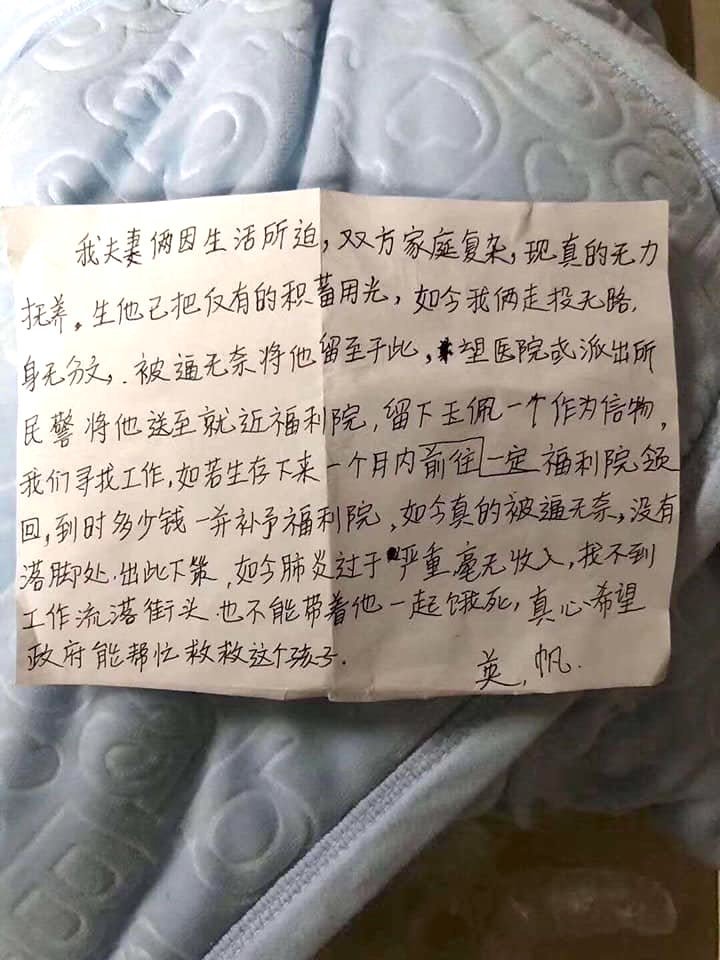 我夫妻俩因生活所迫，双方家庭复杂，现真的无力
抚养。生他已把仅有的积蓄用光，如今我俩走投无路，
身无分文，.被逼无奈将他留至于此，望医院或派出所
民警将他送至就近福利院，留下玉佩一个作为信物，
我们寻找工作，如若生存下来一个月内前往一定福利院领
回，到时多少钱一并补予福利院，如今真的被逼无奈，没有
落脚处.出此下策，如今肺炎过于严重毫无收入，找不到
工作流落街头.也不能带着他一起饿死，真心希望
政府能帮忙救救这个孩子.
英.帆.